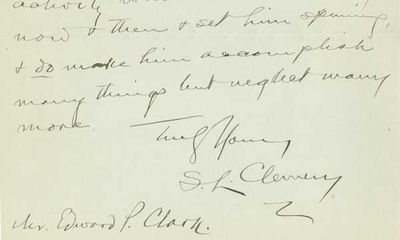 activity
now & then & set him spinning,
& do make him accomplish
many things but neglect many
more. Truly Yours
S. L. Clemens
Mr. Edward P. Clark.